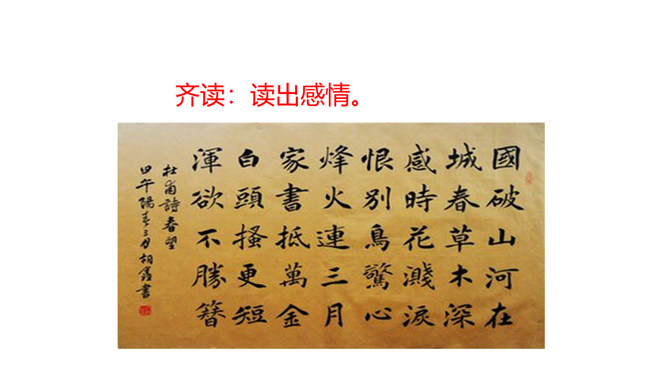 齐读：读出感情。
國破山河在
城春草木深
感時花濺淚
恨別鳥驚心
烽火連三月
家書抵萬金
白頭搔更短
渾欲不勝簪
杜甫詩春望
甲午陽春三月胡鑫書